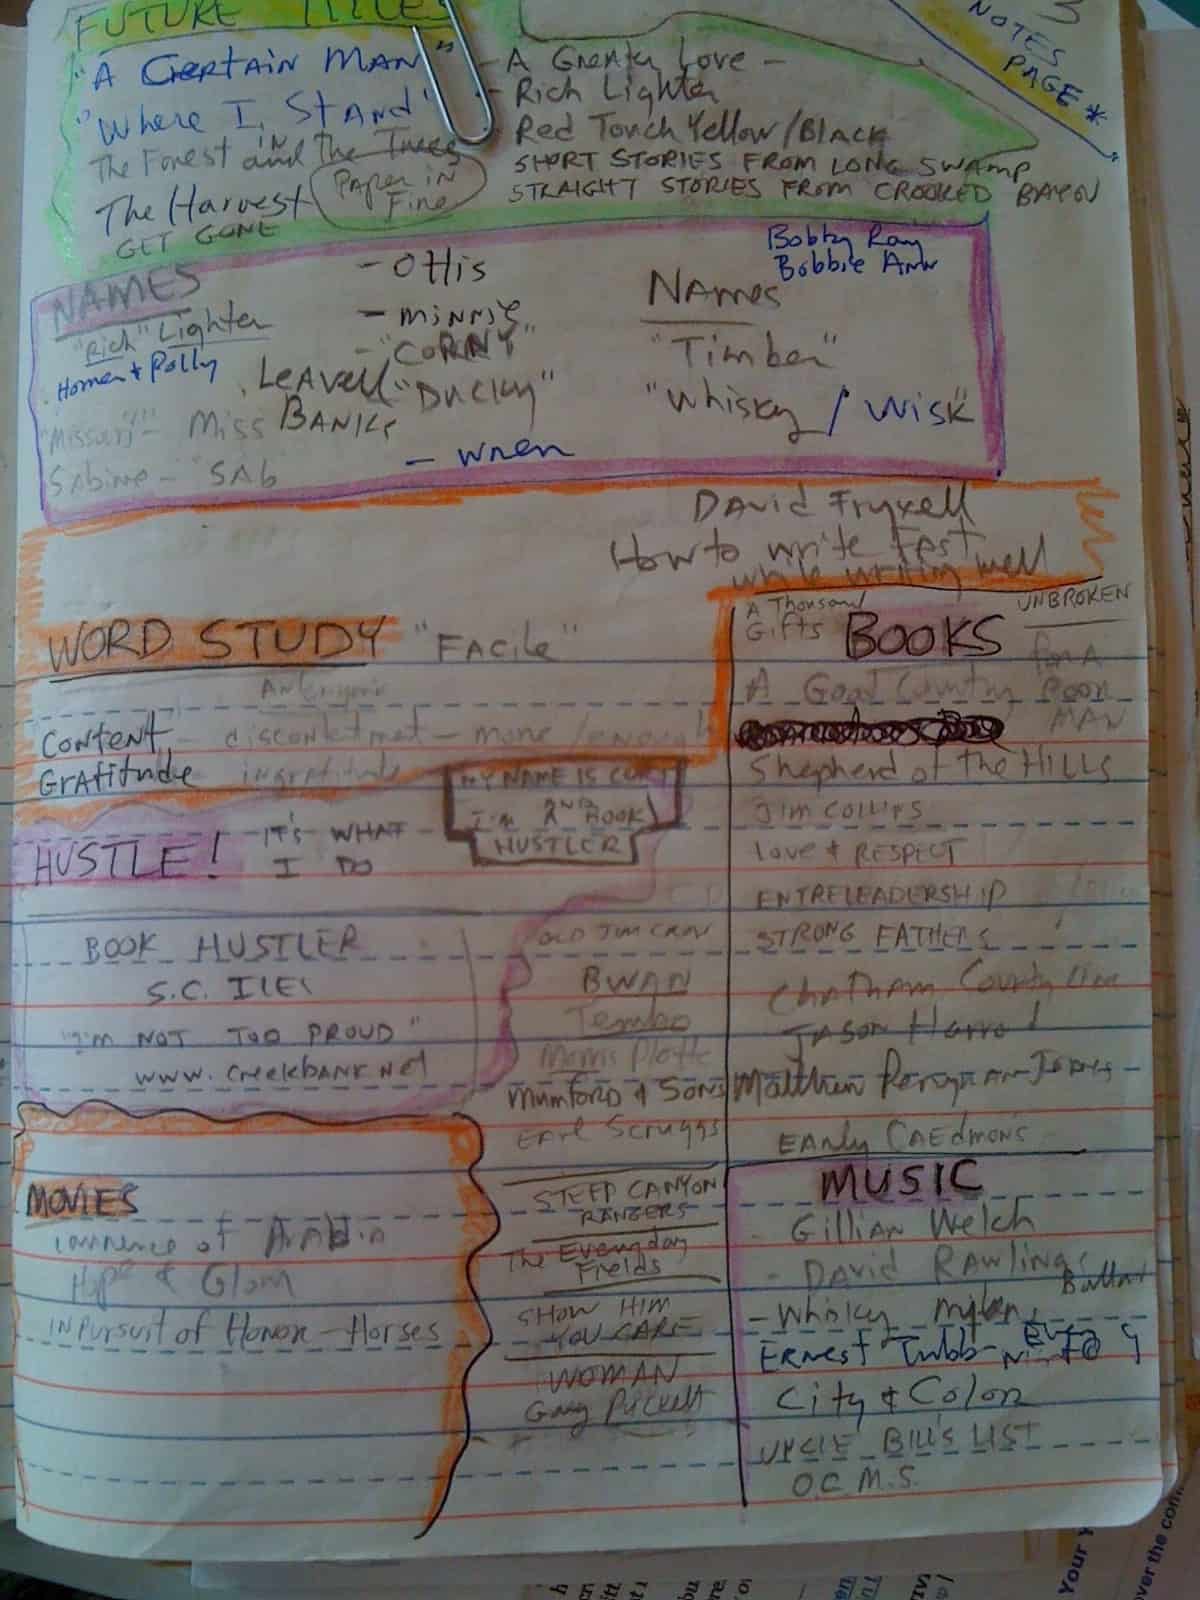 FUTURE TITLES
"A CERTAIN MAN"
"Where I Stand"
The Forest and The Trees
IN
The Harvest
Paper in
Fire
GET GONE
- A Greater Love -
- Rich Lighter
Red Touch Yellow/Black
SHORT STORIES FROM LONG SWAMP
STRAIGHT STORIES FROM CROOKED BAYOU
NOTES
PAGE *
NAMES
"Rich" Lighter
Homer + Polly
"Missouri" - Miss
Sabine - SAb
- Ottis
- Minnie
- "CORNY"
LEAVELL "Ducky"
BANKS
- Wren
Bobby Ray
Bobbie Ann
NAMES
"Timber"
"Whisky / Wisk"
David Fryxell
How to write Fast
while writing well
WORD STUDY "FACILE"
Content - discontentment - more / enough
Gratitude ingratitude
HUSTLE!
IT'S WHAT
I DO
MY NAME IS CURT
I'm A BOOK
HUSTLER
BOOK HUSTLER
S.C. ILES
"I'M NOT TOO PROUD"
www.creekbank.net
MOVIES
Lawrence of Arabia
Hype & Glory
IN PURSUIT of Honor - Horses
A Thousand
Gifts
BOOKS
UNBROKEN
A Good Country
for A
Poor
MAN
Shepherd of the HILLS
Jim Collins
Love & RESPECT
ENTRELEADERSHIP
STRONG FATHERS
Chatham County Line
Jason Harrod
Matthew Perryman Jones
EARLY CAEDMON'S
OLD JIM CROW
BWANA
Tembo
Mumford & Sons
Earl Scruggs
STEEP CANYON
RANGERS
The Everyday
Fields
SHOW HIM
YOU CARE
WOMAN
Gary Puckett
MUSIC
- Gillian Welch
- DAVID Rawlings
- Whisky
Ernest Tubb -
City & Color
UNCLE BILL'S LIST
O.C.M.S.